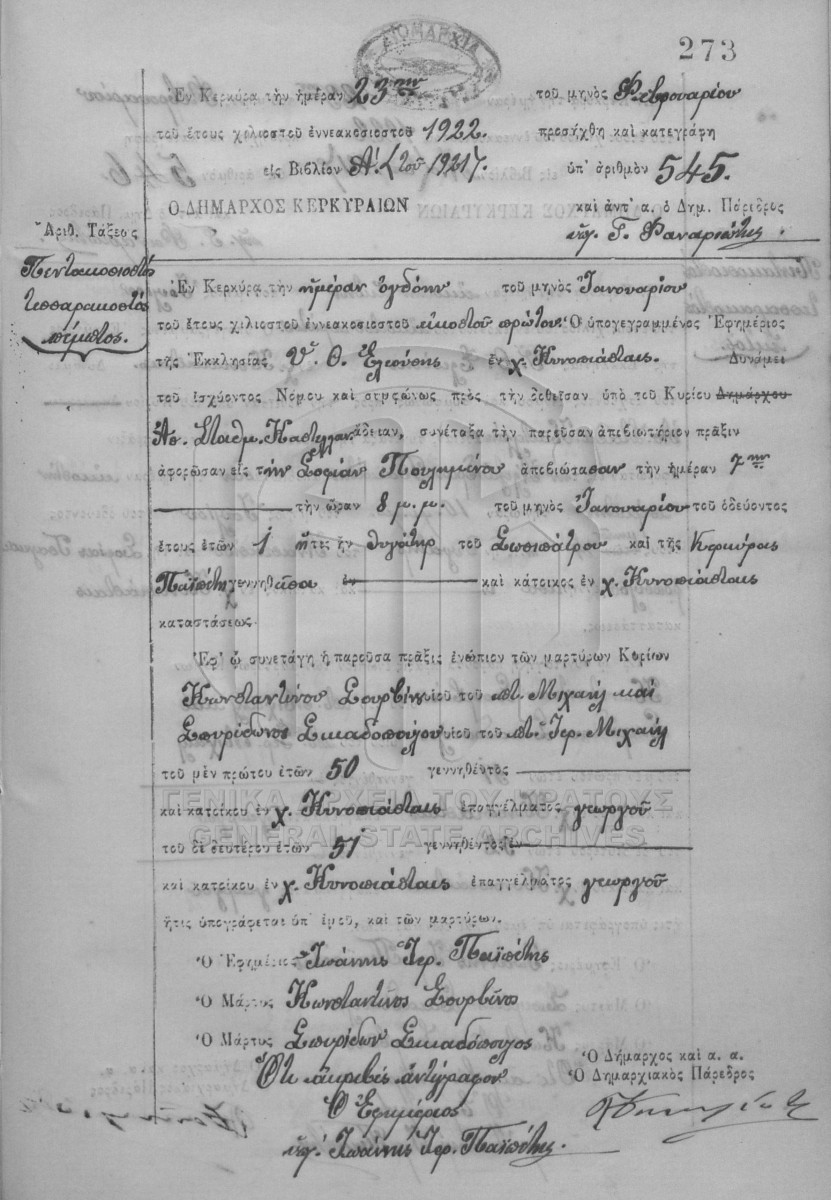 ΔΗΜΑΡΧΙΑ
273
Ἐν Κερκύρᾳ τὴν ἡμέραν 23ην τοῦ μηνὸς Φεβρουαρίου
τοῦ ἔτους χιλιοστοῦ ἐννεακοσιοστοῦ 1922. προσήχθη καὶ κατεγράφη
εἰς Βιβλίον Α΄. (τοῦ 1921). ὑπ' ἀριθμὸν 545.
Ο ΔΗΜΑΡΧΟΣ ΚΕΡΚΥΡΑΙΩΝ καὶ ἀντ' α. ὁ Δημ. Πάρεδρος
Γ. Φαναριώτης
Ἀριθ. Τάξεως
Πεντακοσιοστὸς
τεσσαρακοστὸς
πέμπτος.
Ἐν Κερκύρᾳ τὴν ἡμέραν ὀγδόην τοῦ μηνὸς Ἰανουαρίου
τοῦ ἔτους χιλιοστοῦ ἐννεακοσιοστοῦ εἰκοστοῦ πρώτου. Ὁ ὑπογεγραμμένος Ἐφημέριος
τῆς Ἐκκλησίας Ὑ. Θ. Ἐλεούσης ἐν χ. Κυνοπιάσταις. Δυνάμει
τοῦ ἰσχύοντος Νόμου καὶ συμφώνως πρὸς τὴν δοθεῖσαν ὑπὸ τοῦ Κυρίου Δημάρχου
Ἀσ. Σταθμ. Καστελλαν. ἄδειαν, συνέταξα τὴν παροῦσαν ἀποβιωτήριον πρᾶξιν
ἀφορῶσαν εἰς τὴν Σοφίαν Πουλημένου ἀποβιώσασαν τὴν ἡμέραν 7ην
τὴν ὥραν 8 μ. μ. τοῦ μηνὸς Ἰανουαρίου τοῦ ὁδεύοντος
ἔτους ἐτῶν 1 ἥτις ἦν θυγάτηρ τοῦ Σωσιπάτρου καὶ τῆς Κερκύρας
Παϊπέτη γεννηθεῖσα ἐν καὶ κάτοικος ἐν χ. Κυνοπιάσταις
καταστάσεως
Ἐφ' ᾧ συνετάγη ἡ παροῦσα πρᾶξις ἐνώπιον τῶν μαρτύρων Κυρίων
Κωνσταντίνου Σουρβίνου υἱοῦ τοῦ ποτ. Μιχαὴλ καὶ
Σπυρίδωνος Σκιαδοπούλου υἱοῦ τοῦ ποτ. Ἱερ. Μιχαὴλ
τοῦ μὲν πρώτου ἐτῶν 50 γεννηθέντος
καὶ κατοίκου ἐν χ. Κυνοπιάσταις ἐπαγγέλματος γεωργοῦ
ΓΕΝΙΚΑ ΑΡΧΕΙΑ ΤΟΥ ΚΡΑΤΟΥΣ
GENERAL STATE ARCHIVES
τοῦ δὲ δευτέρου ἐτῶν 51 γεννηθέντος ἐν
καὶ κατοίκου ἐν χ. Κυνοπιάσταις ἐπαγγέλματος γεωργοῦ
ἥτις ὑπογράφεται ὑπ' ἐμοῦ, καὶ τῶν μαρτύρων.
Ὁ Ἐφημέριος Ἰωάννης Ἱερ. Παϊπέτης
Ὁ Μάρτυς Κωνσταντῖνος Σουρβῖνος
Ὁ Μάρτυς Σπυρίδων Σκιαδόπουλος
Ὅτι ἀκριβὲς ἀντίγραφον
Ὁ Δήμαρχος καὶ α. α.
Ὁ Δημαρχιακὸς Πάρεδρος
Ὁ Ἐφημέριος
Ἰωάννης Ἱερ. Παϊπέτης.